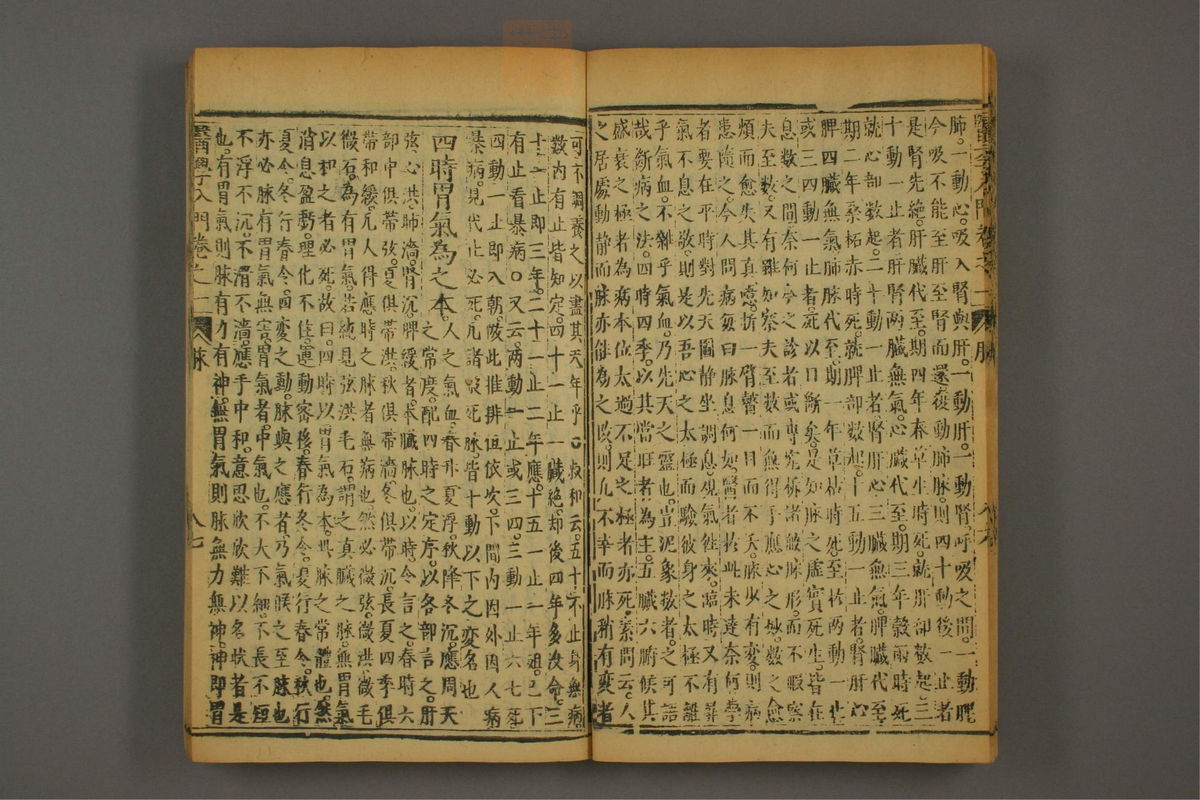 肺。一動心。吸入腎與肝。一動肝。一動腎。呼吸之間。一動脾
今吸不能至肝至腎而還。復動肺脉。則四十動後一止者
是腎先絶。肝臓代至。期四年春草生時死。就肝部數起。三
十動一止者。肝腎兩臓無氣。心臓代至。期三年穀雨時死
就心部數起。二十動一止者。腎肝心三臓無氣。脾臓代至
期二年桑柘赤時死。就脾部數起。十五動一止者。腎肝心
脾四臓無氣。肺脉代至。期一年草枯時死。至於兩動一止
或三四動一止者。死以日斷矣。是知脉之虚實死生。皆在
息數之間。奈何今之診者。或專究析諸般脉形。而不暇察
夫至數。又有雖知察夫至數。而無得手應心之妙。數之愈
煩而愈失其真。噫。折一臂。瞽一目而不夭。脉少有變。則病
患隨之。今人問病。每曰脉息何如。醫者於此未達。奈何。學
者要在平時對先天圖。静坐調息。觀氣往來。臨時又有
氣不息之敬。則是以吾心之太極。而驗彼身之太極。不離
乎氣血。不雜乎氣血。乃先天之靈也。豈泥象數者之可語
哉。斷病之法。四時四季。以其當旺者為主。五臓六腑。候其
盛衰之極者為病本位。太過不足之極者亦死。素問云。人
之居處動静而脉亦皆為之改。則凡不幸而脉稍有變者
可不調養之以盡其天年乎。叔和云。五十不止身無病。
數内有止皆知定。四十一止一臓絶。却後四年多没命。三
十一止即三年。二十一止二年應。十五一止一年殂。已下
有止看暴病。又云。兩動一止或三四。三動一止六七死
四動一止即八朝。以此推排但依次。下間内因外因人病
暴病。見代止必死。凡諸般死脉。皆十動以下之變名也
四時胃氣為之本
人之氣血。春升夏浮。秋降冬沉。應周天
之常度。配四時之定序。以各部言之。肝
弦。心洪。肺濇。腎沉。脾緩者。本臓脉也。以時令言之。春時六
部中俱帶弦。夏俱帶洪。秋俱帶濇。冬俱帶沉。長夏四季俱
帶和緩。凡人得應時之脉者。無病也。然必微弦。微洪。微毛
微石。為有胃氣。若純見弦洪毛石。謂之真臓之脉。無胃氣
以和之者必死。故曰。四時以胃氣為本。此脉之常體也。然
消息盈虧。理化不住。運動密移。春行冬令。夏行春令。秋行
夏令。冬行春令。四變之動。脉與之應者。乃氣候之至。脉也
亦必脉有胃氣無害。胃氣者。中氣也。不大不細。不長不短
不浮不沉。不滑不濇。應手中和。意思欣欣。難以名狀者是
也。有胃氣則脉有力有神。無胃氣則脉無力無神。神即胃
醫學入門卷之一
脉
八七